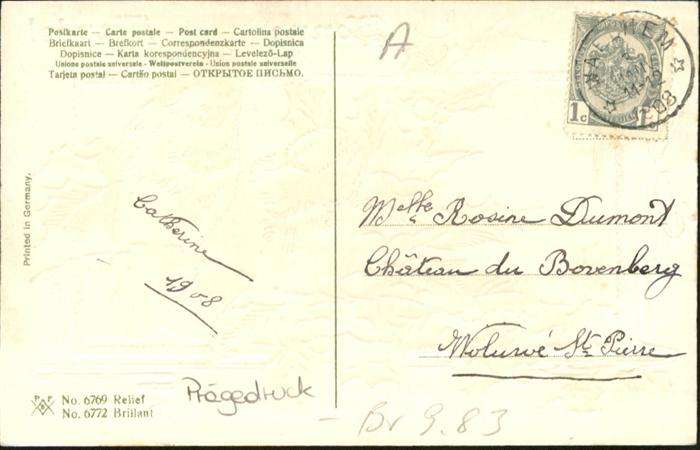 Postkarte — Carte postale — Post card — Cartolina postale
Briefkaart — Brefkort — Correspondenzkarte — Dopisnica
Dopisnice — Karta korespondencyjna — Levelező-Lap
Unione postale universale - Weltpostverein - Union postale universelle
Tarjeta postal — Cartão postal — ОТКРЫТОЕ ПИСЬМО.
A
WAELHEM
08
1c 1c
Printed in Germany.
Catherine
1908
Melle Rosine Dumont
Château du Bovenberg
Woluwé St Pierre
PFB
No. 6769 Relief
No. 6772 Brillant
Prägedruck
- Br 9.83